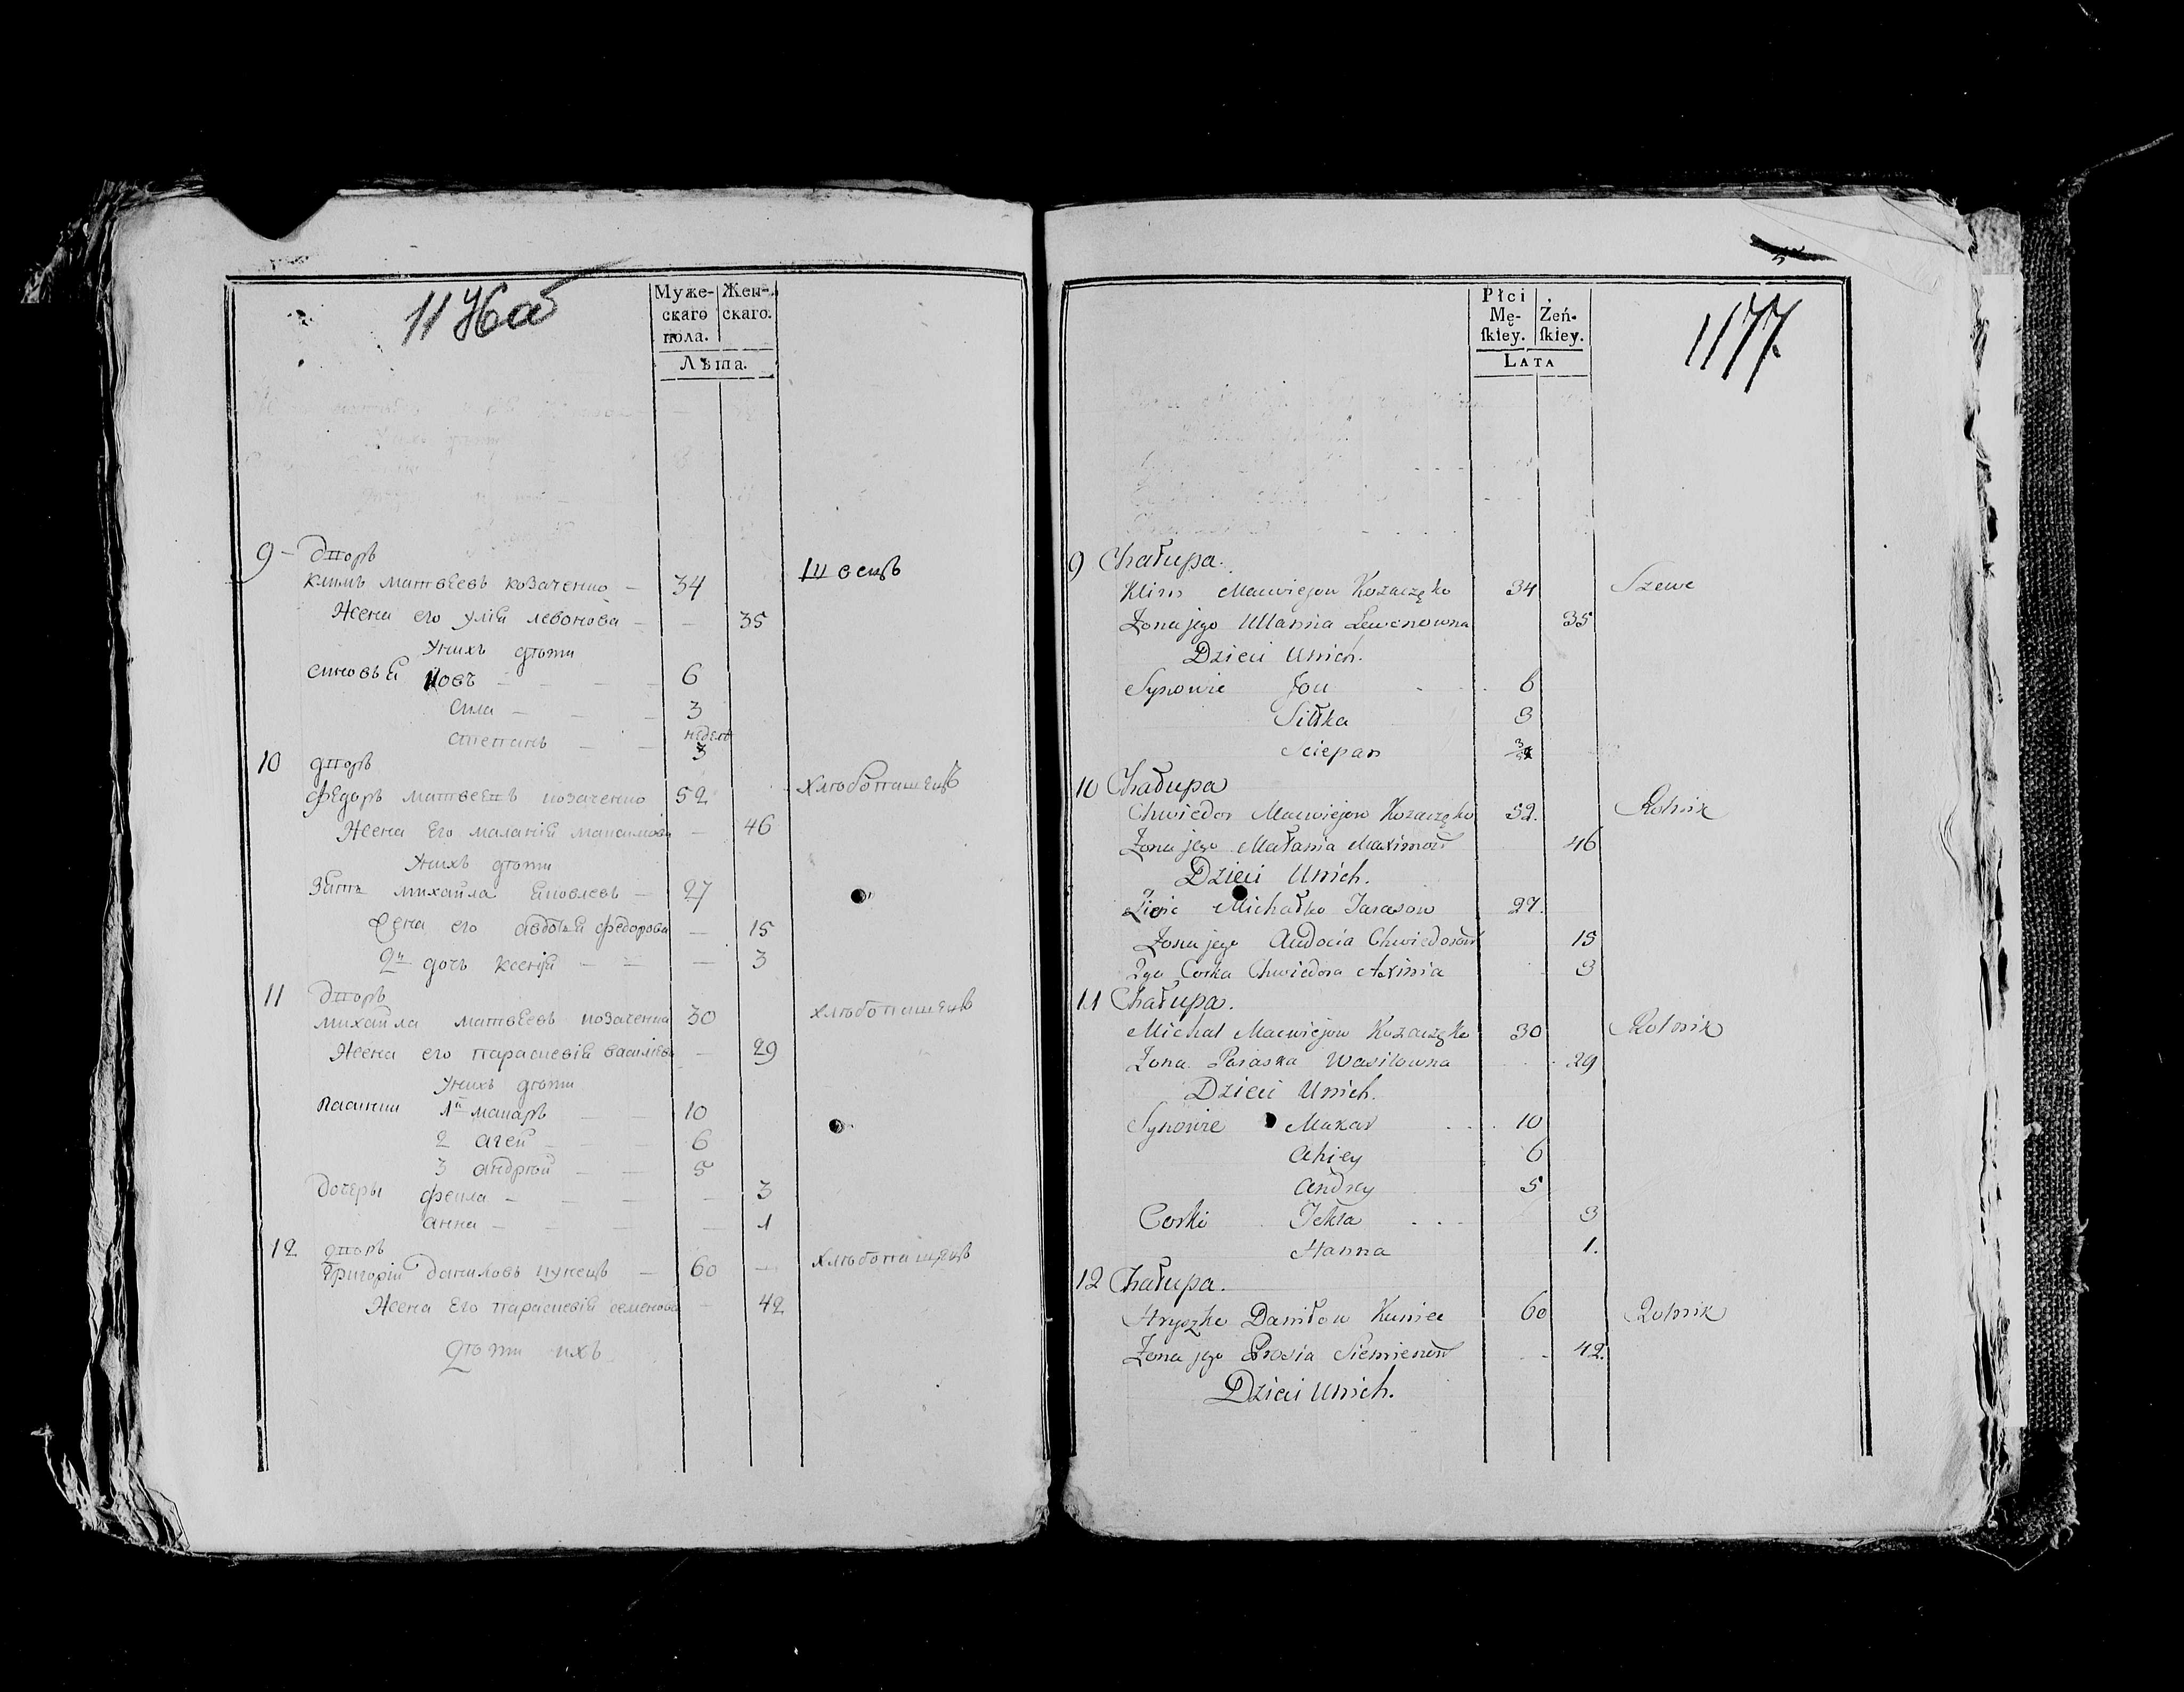 1176об
Муже-
скаго
пола.
Жен-
скаго.
Лѣта.
9 – дворъ
климъ матвѣевъ козаченко – 34 Швецъ
Жена его улія левонова – – 35
Унихъ дѣти
синовья Иовъ – – – – 6
сила – – – 3
степанъ – – недель 3
10 дворъ
федоръ матвеевъ козаченко 52 хлѣбопашецъ
Жена его маланія максимова – 46
Унихъ дѣти
Зять михайла – 27
Жена его авдотья федорова – 15
2я дочь ксенія – – – 3
11 Дворъ
михайла матвѣевъ козаченко 30 хлѣбопашецъ
Жена его параскевія василіева – 29
Унихъ дѣти
1й макаръ – – 10
2 агей – – – 6
3 андрѣй – – 5
Дочеры фекла – – – – 3
анна – – – – 1
12 дворъ
Григорій даниловъ кунецъ – 60 – хлѣбопашецъ
Жена его параскевія семенова – 42
Дѣти ихъ
1177.
Płci
Mę-
ſkiey.
Żeń-
ſkiey.
LATA
9 Chałupa.
Klim Maciejow Kozaczęko 34 Szewc
Żona jego Ullanna Lewonowna 35
Dzieci Unich.
Synowie Jou 6
Siłka 3
Sciepan
10 Chałupa
Chwiedor Maciejow Kozaczęko 52. Rolnik
Żona jego Małania Maximow 46
Dzieci Unich.
Zięć Michałko Tarasow 27.
Żona jego Audocia Chwiedorow 15
2ga Corka Chwiedora Axinia 3
11 Chałupa.
Michał Maciejow Kozaczęko 30 Rolnik
Żona Paraska Wasilowna 29
Dzieci Unich.
Synowie Makar 10
Ahiey 6
Andrey 5
Corki Tekla 3
Hanna 1.
12 Chałupa.
Hryszko Daniłow Kuniec 60 Rolnik
Żona jego Prosia Siemienow 42.
Dzieci Unich.